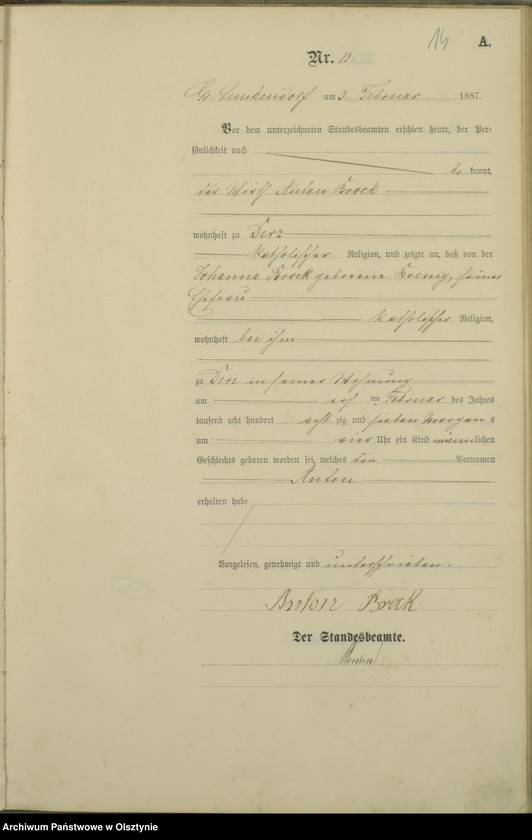 14
A.
Nr. 13.
am 3. Februar 1887.
Vor dem unterzeichneten Standesbeamten erschien heute, der Per-
sönlichkeit nach
be kannt,
der Wirth Anton Brock
wohnhaft zu Derz
katholischer Religion, und zeigte an, daß von der
Johanna Brock geborene Koenig, seiner
Ehefrau
katholischer Religion,
wohnhaft bei ihm
zu Derz in seiner Wohnung
am ten Februar des Jahres
tausend acht hundert acht zig und sieben Morgens
um vier Uhr ein Kind männlichen
Geschlechts geboren worden sei, welches den Vornamen
Anton
erhalten habe
Vorgelesen, genehmigt und unterschrieben.
Anton Brock
Der Standesbeamte.
Archiwum Państwowe w Olsztynie